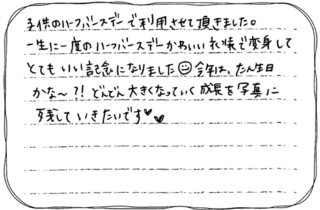 子供のハーフバースデーで利用させて頂きました。
一生に一度のハーフバースデーかわいい衣装で変身して
とてもいい記念になりました☺今年は、たん生日
かな〜?!どんどん大きくなっていく成長を写真に
残していきたいです♥♥